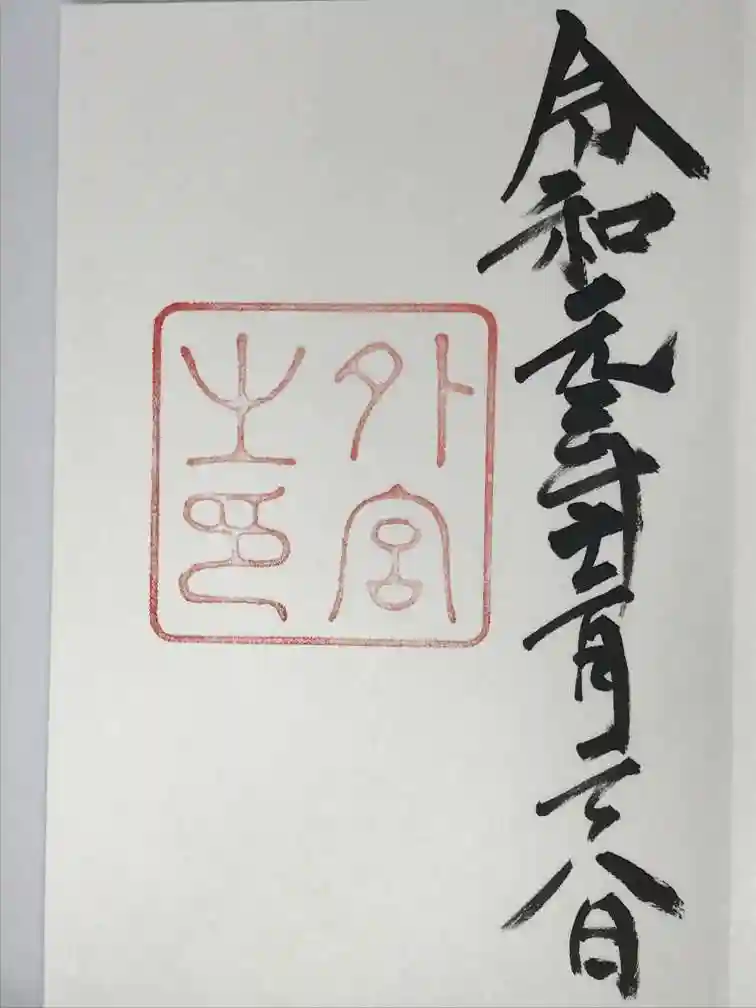 令和元年十二月日
外宮
之印